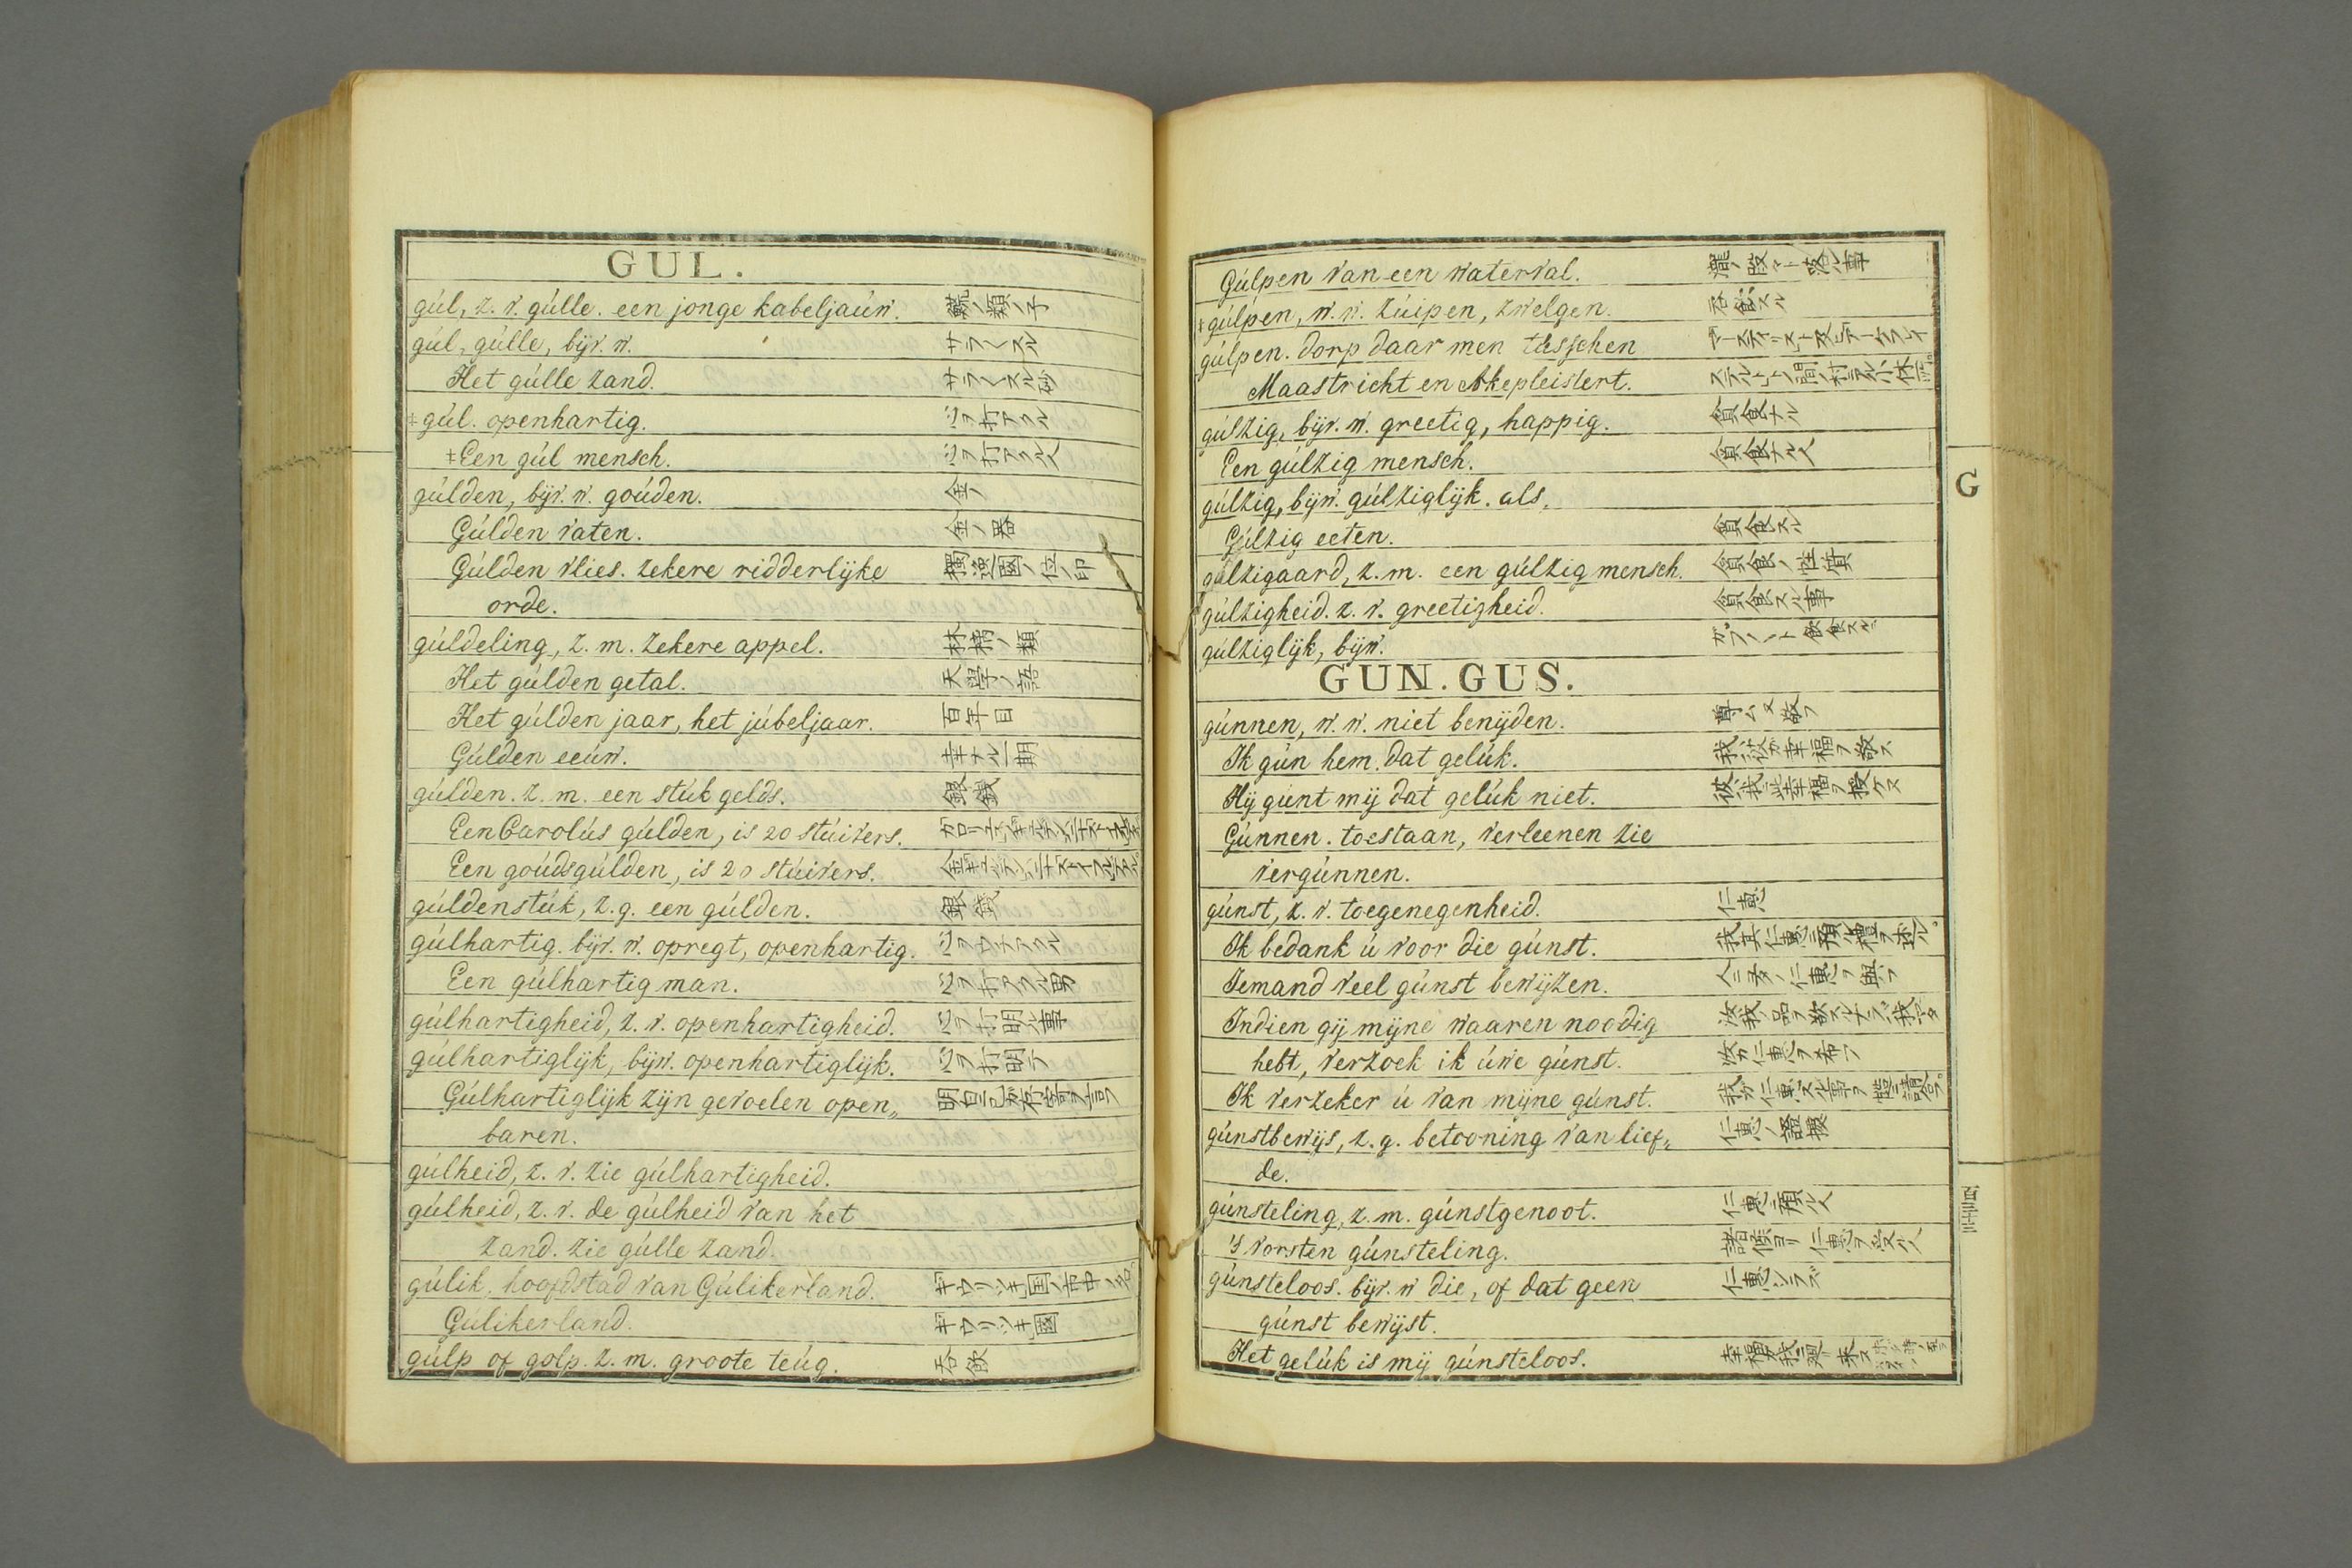 GUL.
gúl, z. v. gúlle. een jonge kabeljaúw. 鱈ノ類ノ子
gúl, gúlle, bijv. w. サラ〱スル
Het gúlle zand. サラ〱スル砂
‡gúl. openhartig. 心ヲ打アクル
‡Een gúl mensch. 心ヲ打アクル人
gúlden, bijv. w. goúden. 金ノ
Gúlden vaten. 金ノ器
Gúlden vlies. zekere ridderlijke 獨逸國ノ位ノ印
orde.
gúldeling, z. m. zekere appel. 林檎ノ類
Het gúlden getal. 天學ノ語
Het gúlden jaar, het júbeljaar. 百年目
Gúlden eeúw. 幸ナル一期
gúlden. z. m. een stúk gelds. 銀錢
Een Carolús gúlden, is 20 stúivers.
Een goúdsgúlden, is 20 stúivers.
gúldenstúk, z. g. een gúlden. 銀錢
gúlhartig. bijv. w. opregt, openhartig. 心ヲウチアクル
Een gúlhartig man. 心ヲ打アクル男
gúlhartigheid, z. v. openhartigheid. 心ヲ打明ル事
gúlhartiglijk, bijw. openhartiglijk. 心ヲ打明テ
Gúlhartiglijk zijn gevoelen open„ 明白ニ己ガ存寄ヲ言フ
baren.
gúlheid, z. v. zie gúlhartigheid.
gúlheid, z. v. de gúlheid van het
zand. zie gúlle zand.
gúlik. hoofdstad van Gúlikerland. ギウリッキ国ノ市中ノ名
Gúlikerland. ギウリッキ國
gúlp of golp. z. m. groote teúg. 呑飲
Gúlpen van een waterval.
‡gúlpen, w. w. zúipen, zwelgen. 呑飲スル
gúlpen. dorp daar men tússchen
Maastricht en Akepleistert.
gúlzig, bijv. w. greetig, happig. 貪食ナル
Een gúlzig mensch. 貪食ナル人
gúlzig, bijw. gúlziglijk. als,
Gúlzig eeten. 貪食スル
gúlzigaard, z. m. een gúlzig mensch. 貪食ノ性質
gúlzigheid. z. v. greetigheid. 貪食スル事
gúlziglijk, bijw.
GUN. GUS.
gúnnen, w. w. niet benijden.
Ik gún hem dat gelúk.
Hij gúnt mij dat gelúk niet.
Gúnnen. toestaan, verleenen zie
vergúnnen.
gúnst, z. v. toegenegenheid. 仁惠
Ik bedank ú voor die gúnst.
Iemand veel gúnst bewijzen. 人ニ多ノ仁惠ヲ與フ
Indien gij mijne waaren noodig
hebt, verzoek ik úwe gúnst. 汝ガ仁惠ヲ希フ
Ik verzeker ú van mijne gúnst.
gúnstbewijs, z. g. betooning van lief„ 仁惠ノ證據
de.
gúnsteling, z. m. gúnstgenoot. 仁惠ニ預ル人
's vorsten gúnsteling. 諸侯ヨリ仁惠ヲ受ル人
gúnsteloos. bijv. w die, of dat geen
gúnst bewijst.
Het gelúk is mij gúnsteloos.
G